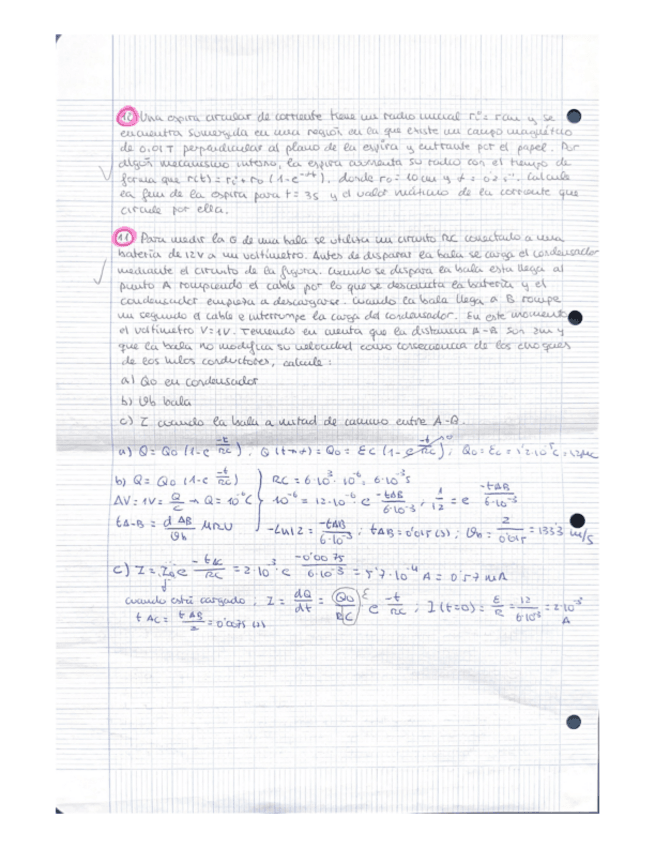 10 Una espira circular de corriente tiene un radio inicial ri = 5cm y se
encuentra sumergida en una región en la que existe un campo magnético
de 0.01 T perpendicular al plano de la espira y entrante por el papel. Por
algún mecanismo interno, la espira aumenta su radio con el tiempo de
forma que r(t) = ri + r0 (1-e^-λt), donde r0 = 10 cm y
la fem de la espira para t = 3s y el valor máximo de la corriente que
circule por ella.
11 Para medir la v de una bala se utiliza un circuito RC conectado a una
batería de 12V a un voltímetro. Antes de disparar la bala se carga el condensador
mediante el circuito de la figura. Cuando se dispara la bala esta llega al
punto A rompiendo el cable por lo que se desconecta la batería y el
condensador empieza a descargarse. Cuando la bala llega a B rompe
un segundo el cable e interrumpe la carga del condensador. En este momento
el voltímetro V=1V. Teniendo en cuenta que la distancia A-B son 2m y
que la bala no modifica su velocidad como consecuencia de los choques
de los hilos conductores, calcule:
a) Q0 en condensador
b) vb bala
c) I cuando la bala a mitad de camino entre A-B.
a) Q = Q0 (1-e^-t/RC). Q(t→∞) = Q0 = εC (1-e^-t/RC)^0; Q0 = εC = 1'2·10^-5 C = 12μC
b) Q = Q0 (1-e^-t/RC) } RC = 6·10^3·10^-6 = 6·10^-3 s
ΔV = 1V = Q/C → Q = 10^-6 C } 10^-6 = 12·10^-6 · e^-tAB/6·10^-3; 1/12 = e^-tAB/6·10^-3
tA-B = dAB/vb MRU } -Ln12 = -tAB/6·10^-3; tAB = 0'015 (s); vb = 2/0'015 = 133'3 m/s
c) I = I0 e^-tAC/RC = 2·10^-3 · e^-0'0075/6·10^-3 = 5'7·10^-4 A = 0'57 mA
cuando está cargado; I = dQ/dt = Q0/RC ε e^-t/RC; I(t=0) = ε/R = 12/6·10^3 = 2·10^-3 A
tAC = tAB/2 = 0'0075 (s)